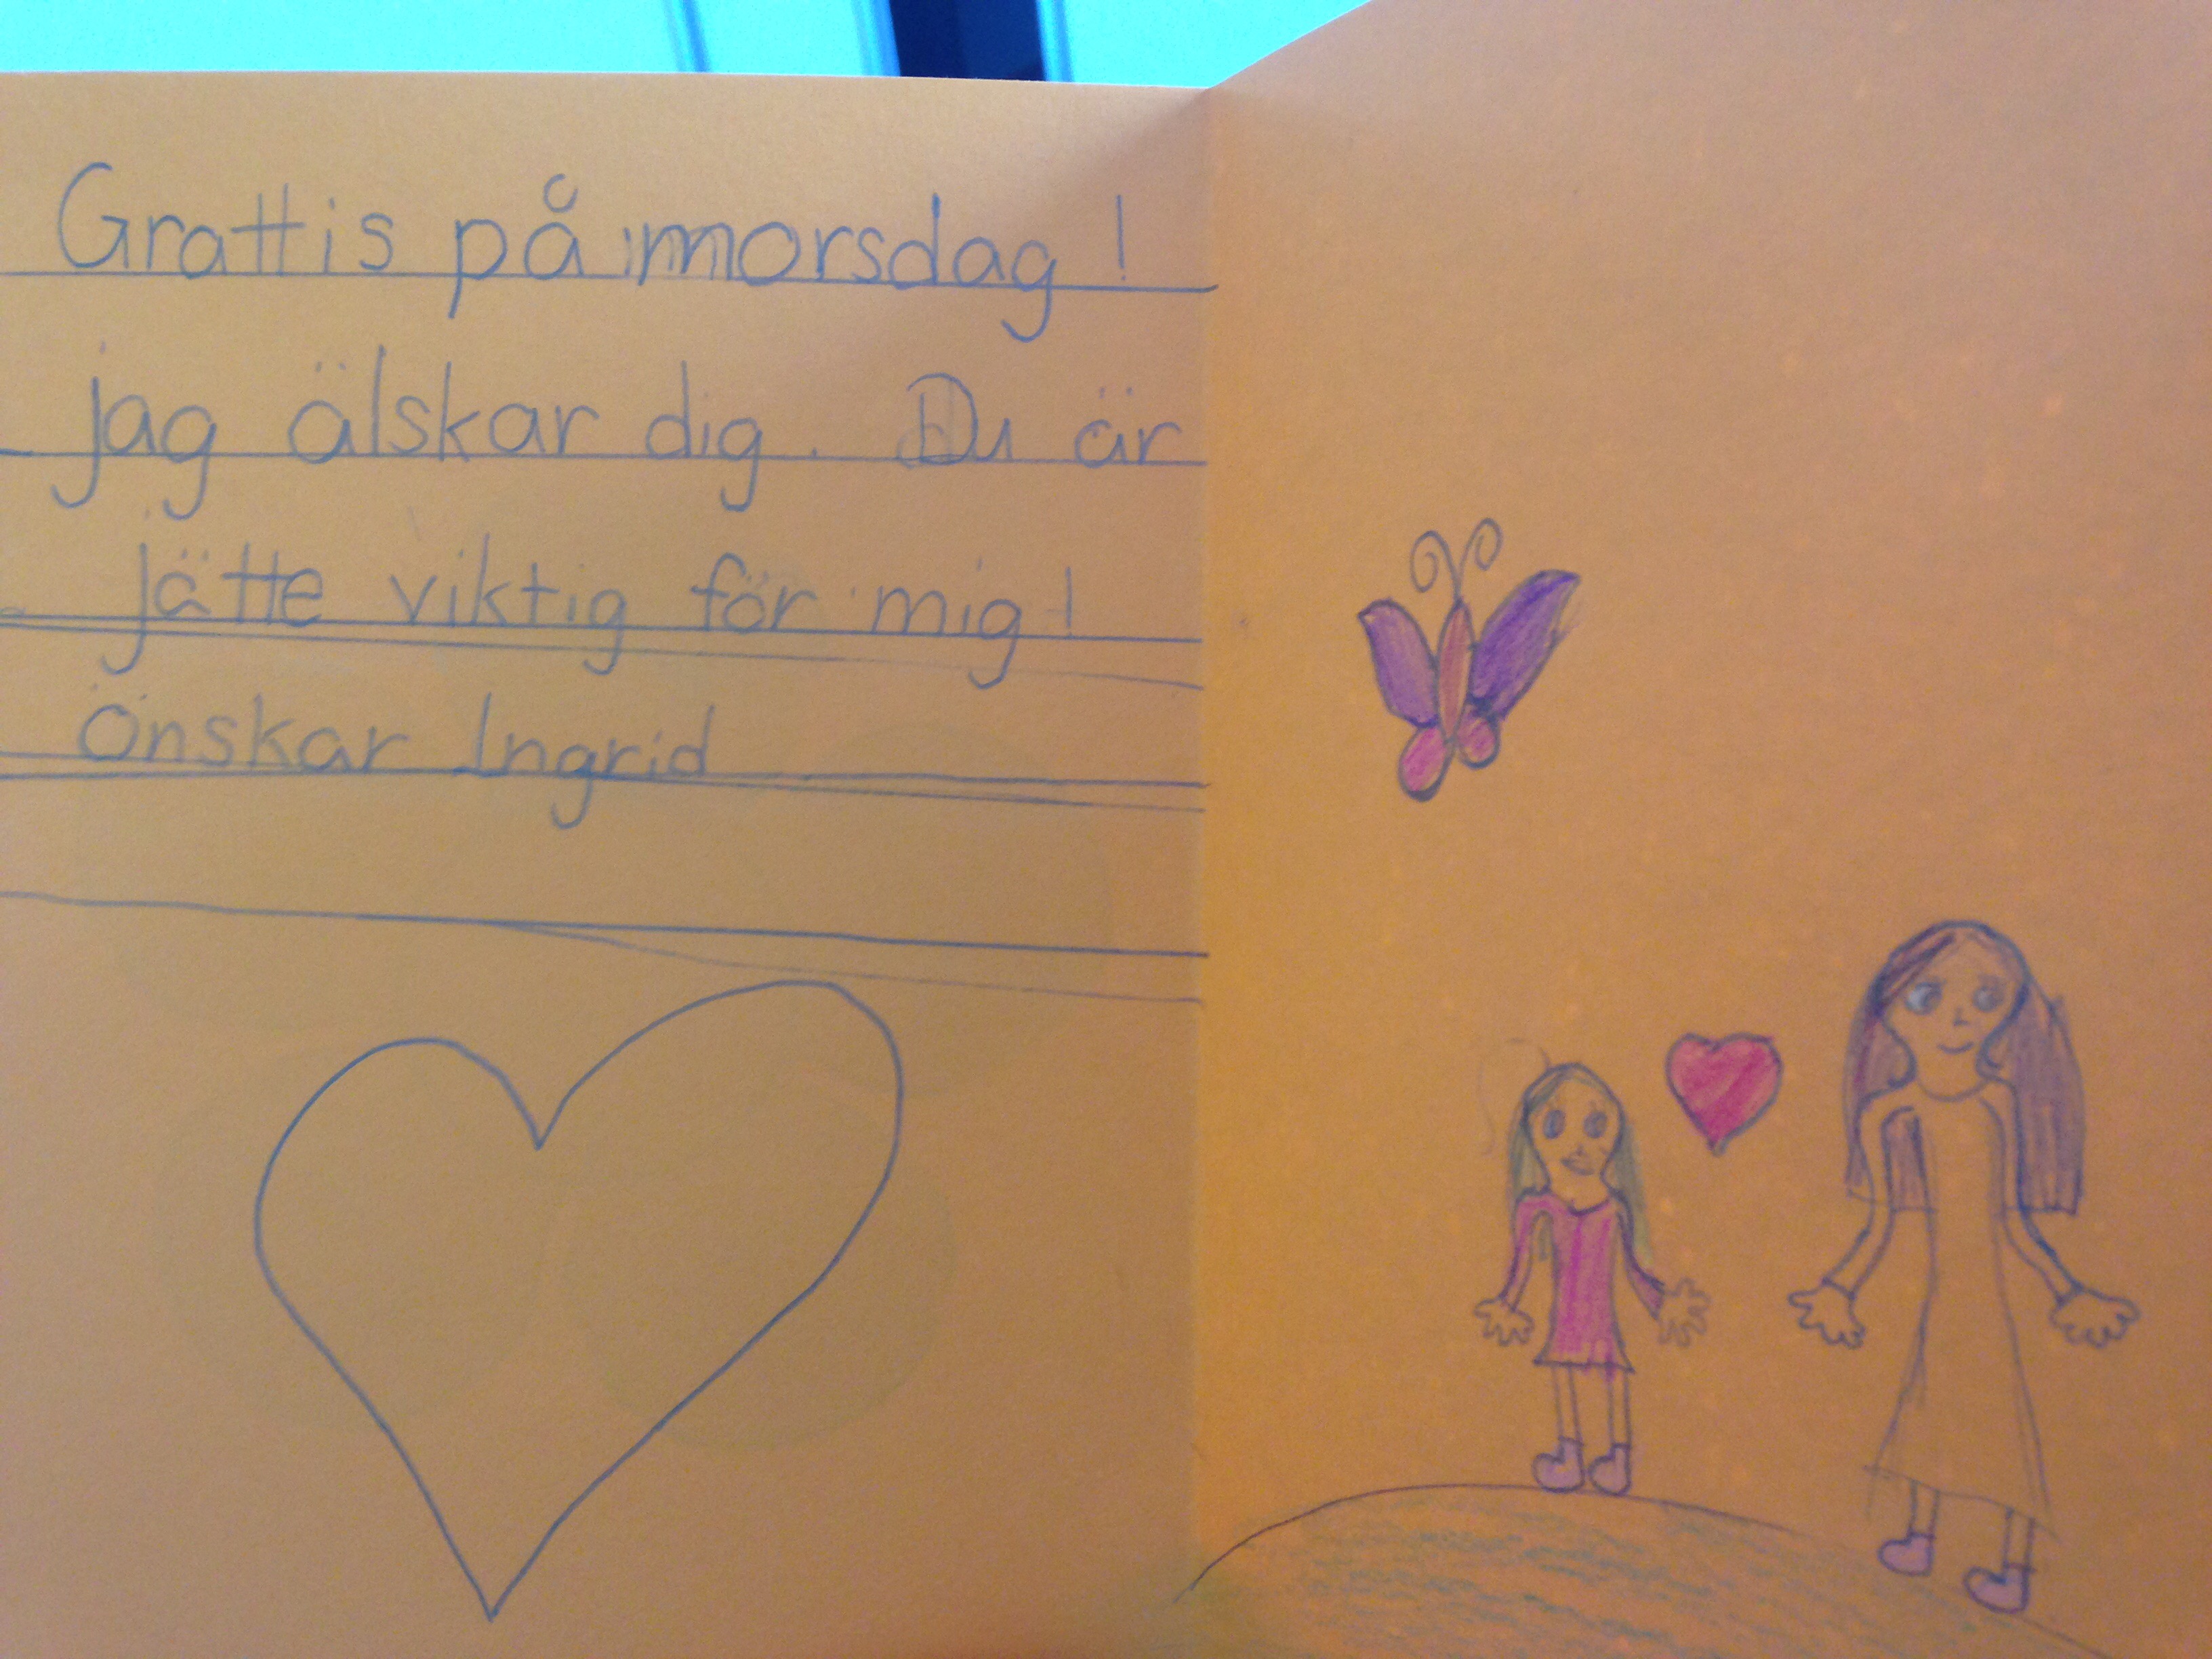 Grattis på morsdag!
jag älskar dig. Du är
jätte viktig för mig!
Önskar Ingrid